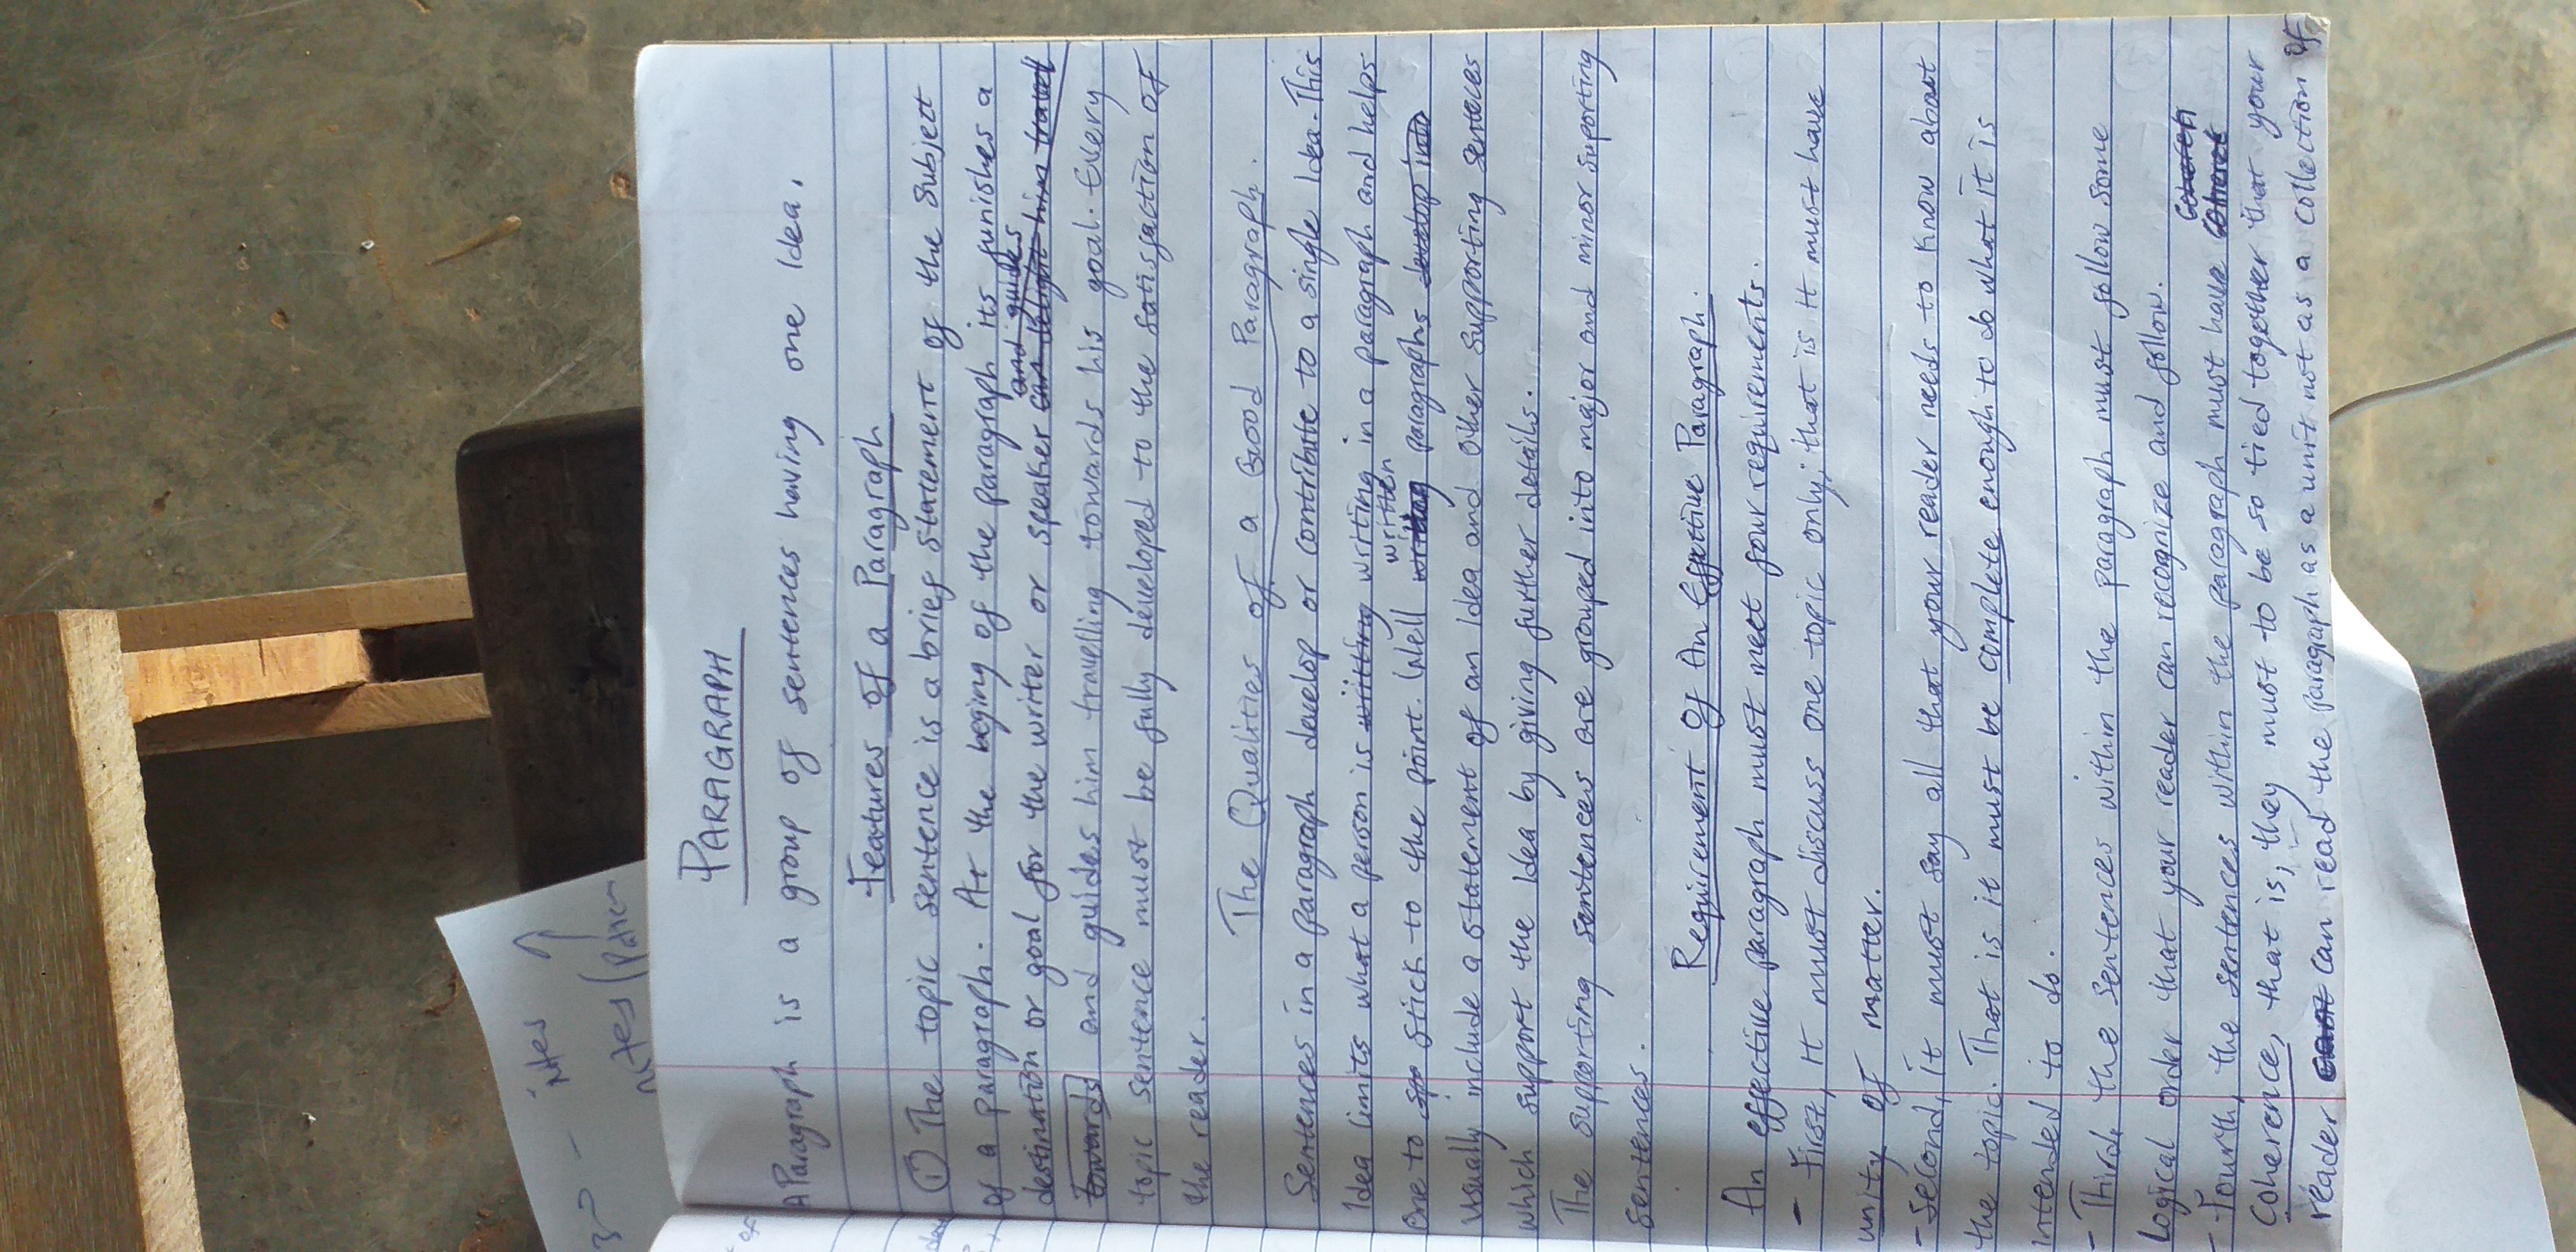 PARAGRAPH
A Paragraph is a group of sentences having one idea.
Features of a Paragraph
① The topic sentence is a brief statement of the subject
of a paragraph. At the begining of the paragraph its funishes a
and guides
destination or goal for the writer or speaker
towards and guides him travelling towards his goal. Every
topic sentence must be fully developed to the satisfaction of
the reader.
The Qualities of a Good Paragraph.
Sentences in a paragraph develop or contribute to a single Idea. This
Idea limits what a person is writting writing in a paragraph and helps
written
one to stick to the point. Well paragraphs develop into
usually include a statement of an idea and other supporting sentences
which support the idea by giving further details.
The supporting sentences are grouped into major and minor supporting
sentences.
Requirement of An Effective Paragraph.
An effective paragraph must meet four requirements.
- First, it must discuss one topic only; that is it must have
unity of matter.
- Second, it must say all that your reader needs to know about
the topic. That is it must be complete enough to do what it is
intended to do.
- Third, the sentences within the paragraph must follow some
Logical order that your reader can recognize and follow.
- Fourth, the sentences within the paragraph must have
Coherence, that is, they must to be so tied together that your
reader can read the paragraph as a unit not as a collection of
notes
notes